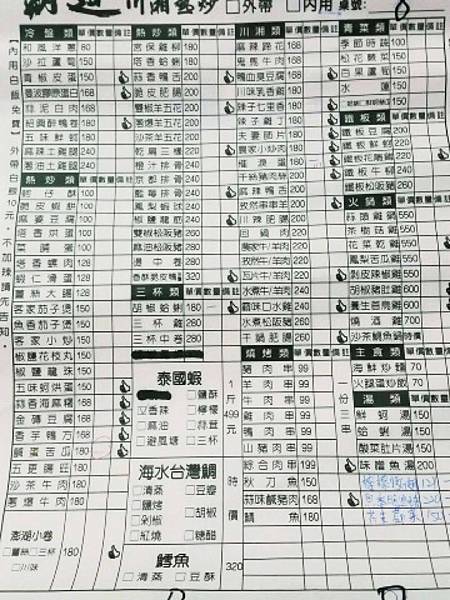 川湘熱炒 □外帶 □內用 桌號:
內用白飯免費】外帶白飯10元。不加辣請先告知。
冷盤類 單價 數量 備註
和風洋蔥 80
沙拉蘆筍 150
青椒皮蛋 150
168
蒜泥白肉 168
紹興醉鴨卷 180
五味鮮蚵 180
麻辣土雞腿 240
蔥油土雞腿 240
熱炒類 單價 數量 備註
蚵仔酥 100
脆皮蝦餅 100
麻婆豆腐 100
塔香烘蛋 100
菜脯蛋 100
塔香螺肉 150
蝦仁滑蛋 150
薑絲大腸 150
客家茄子煲 150
魚香茄子煲 150
客家小炒 150
椒鹽花枝丸 150
椒鹽龍珠 150
五味蚵烘蛋 150
蒜香海瓜 168
金磚豆腐 168
香芋鴨方 168
鹹蛋苦瓜 180
五更腸旺 180
沙茶牛肉 180
蔥爆牛肉 180
澎湖小卷
□薑絲□三杯 180
□川味
熱炒類 單價 數量 備註
宮保雞柳 180
塔香蛤蜊 180
蒜香鴨舌 200
脆皮肥腸 200
雙椒羊五花 200
蔥爆羊五花 200
沙茶羊五花 200
乾扁三樣 220
橙汁排骨 240
京都排骨 240
藍莓排骨 240
鳳梨蝦球 240
椒鹽龍筋 240
雙椒松阪豬 260
麻油松阪豬 260
燙中卷 280
320
三杯類 單價 數量 備註
胡椒蛤蜊 180
三杯雞 280
三杯中卷 280
泰國蝦
□鹽酥
□檸檬
□麻油 □蒜茸
□避風塘 □三杯
1斤499元
海水台灣鯛
□清蒸 □豆瓣
□鹽烤
□剁椒 □胡椒
□紅燒 □糖醋
時價
鱈魚
□清蒸 □豆酥
320
川湘類 單價 數量 備註
麻辣蹄花 168
鬼馬牛肉 168
鴨血臭豆腐 168
川味乳香雞 180
辣子七里香 180
辣子雞丁 180
夫妻肺片 180
農家小炒肉 180
催淚蛋 180
干絲豬肉絲 180
麻辣鴨舌 200
孜然串串羊 200
川辣肥腸 200
回鍋肉 200
農家牛/羊肉 220
孜然牛/羊肉 220
瓦片牛/羊肉 240
水煮牛/羊肉 240
霸味口水雞 240
水煮松阪豬 260
干鍋肥腸 260
燒烤類 單價 數量 備註
豬肉串 99
羊肉串 99
牛肉串 99
雞肉串 99
鴨肉串 99
山豬肉串 99
綜合肉串 199
秋刀魚 150
蒜味鹹豬肉 168
鯛魚 180
一份三串
青菜類 單價 數量 備註
季節時蔬 100
松花蕨菜 150
白果蘆筍 150
水蓮 150
150
鐵板類 單價 數量 備註
鐵板豆腐 200
鐵板鮮蚵 220
鐵板花隋雞 220
鐵板牛柳 240
鐵板松阪豬 260
火鍋類 單價 數量 備註
蒜頭雞鍋 550
茶樹菇雞 550
花菜乾雞 550
鳳梨苦瓜雞 550
剝皮辣椒雞 550
胡椒豬肚雞 600
養生首烏雞 600
燒酒雞 700
沙茶鯛魚鍋 時價
主食類 單價 數量 備註
海鮮炒麵 70
火腿蛋炒飯 70
湯類 單價 數量 備註
鮮蚵湯 150
蛤蜊湯 150
酸菜肚片湯 150
味噌魚湯 200